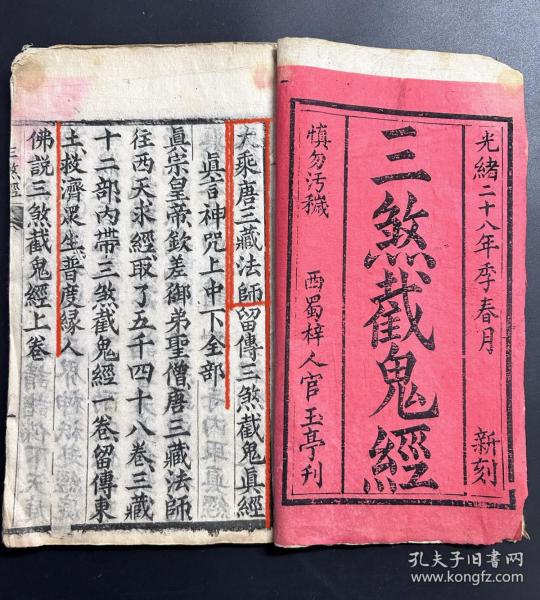 光緒二十八年季春月 新刻
三煞截鬼經
慎勿汚穢 西蜀梓人官玉亭刊
大乘唐三藏法師留傳三煞截鬼真經
真言神咒上中下全部
真宗皇帝欽差御弟聖僧唐三藏法師
往西天求經取了五千四十八卷三藏
十二部内帶三煞截鬼經一卷留傳東
土救濟衆生普度緣人
佛説三煞截鬼經上卷
三煞經
孔夫子旧书网
www.kongfz.com